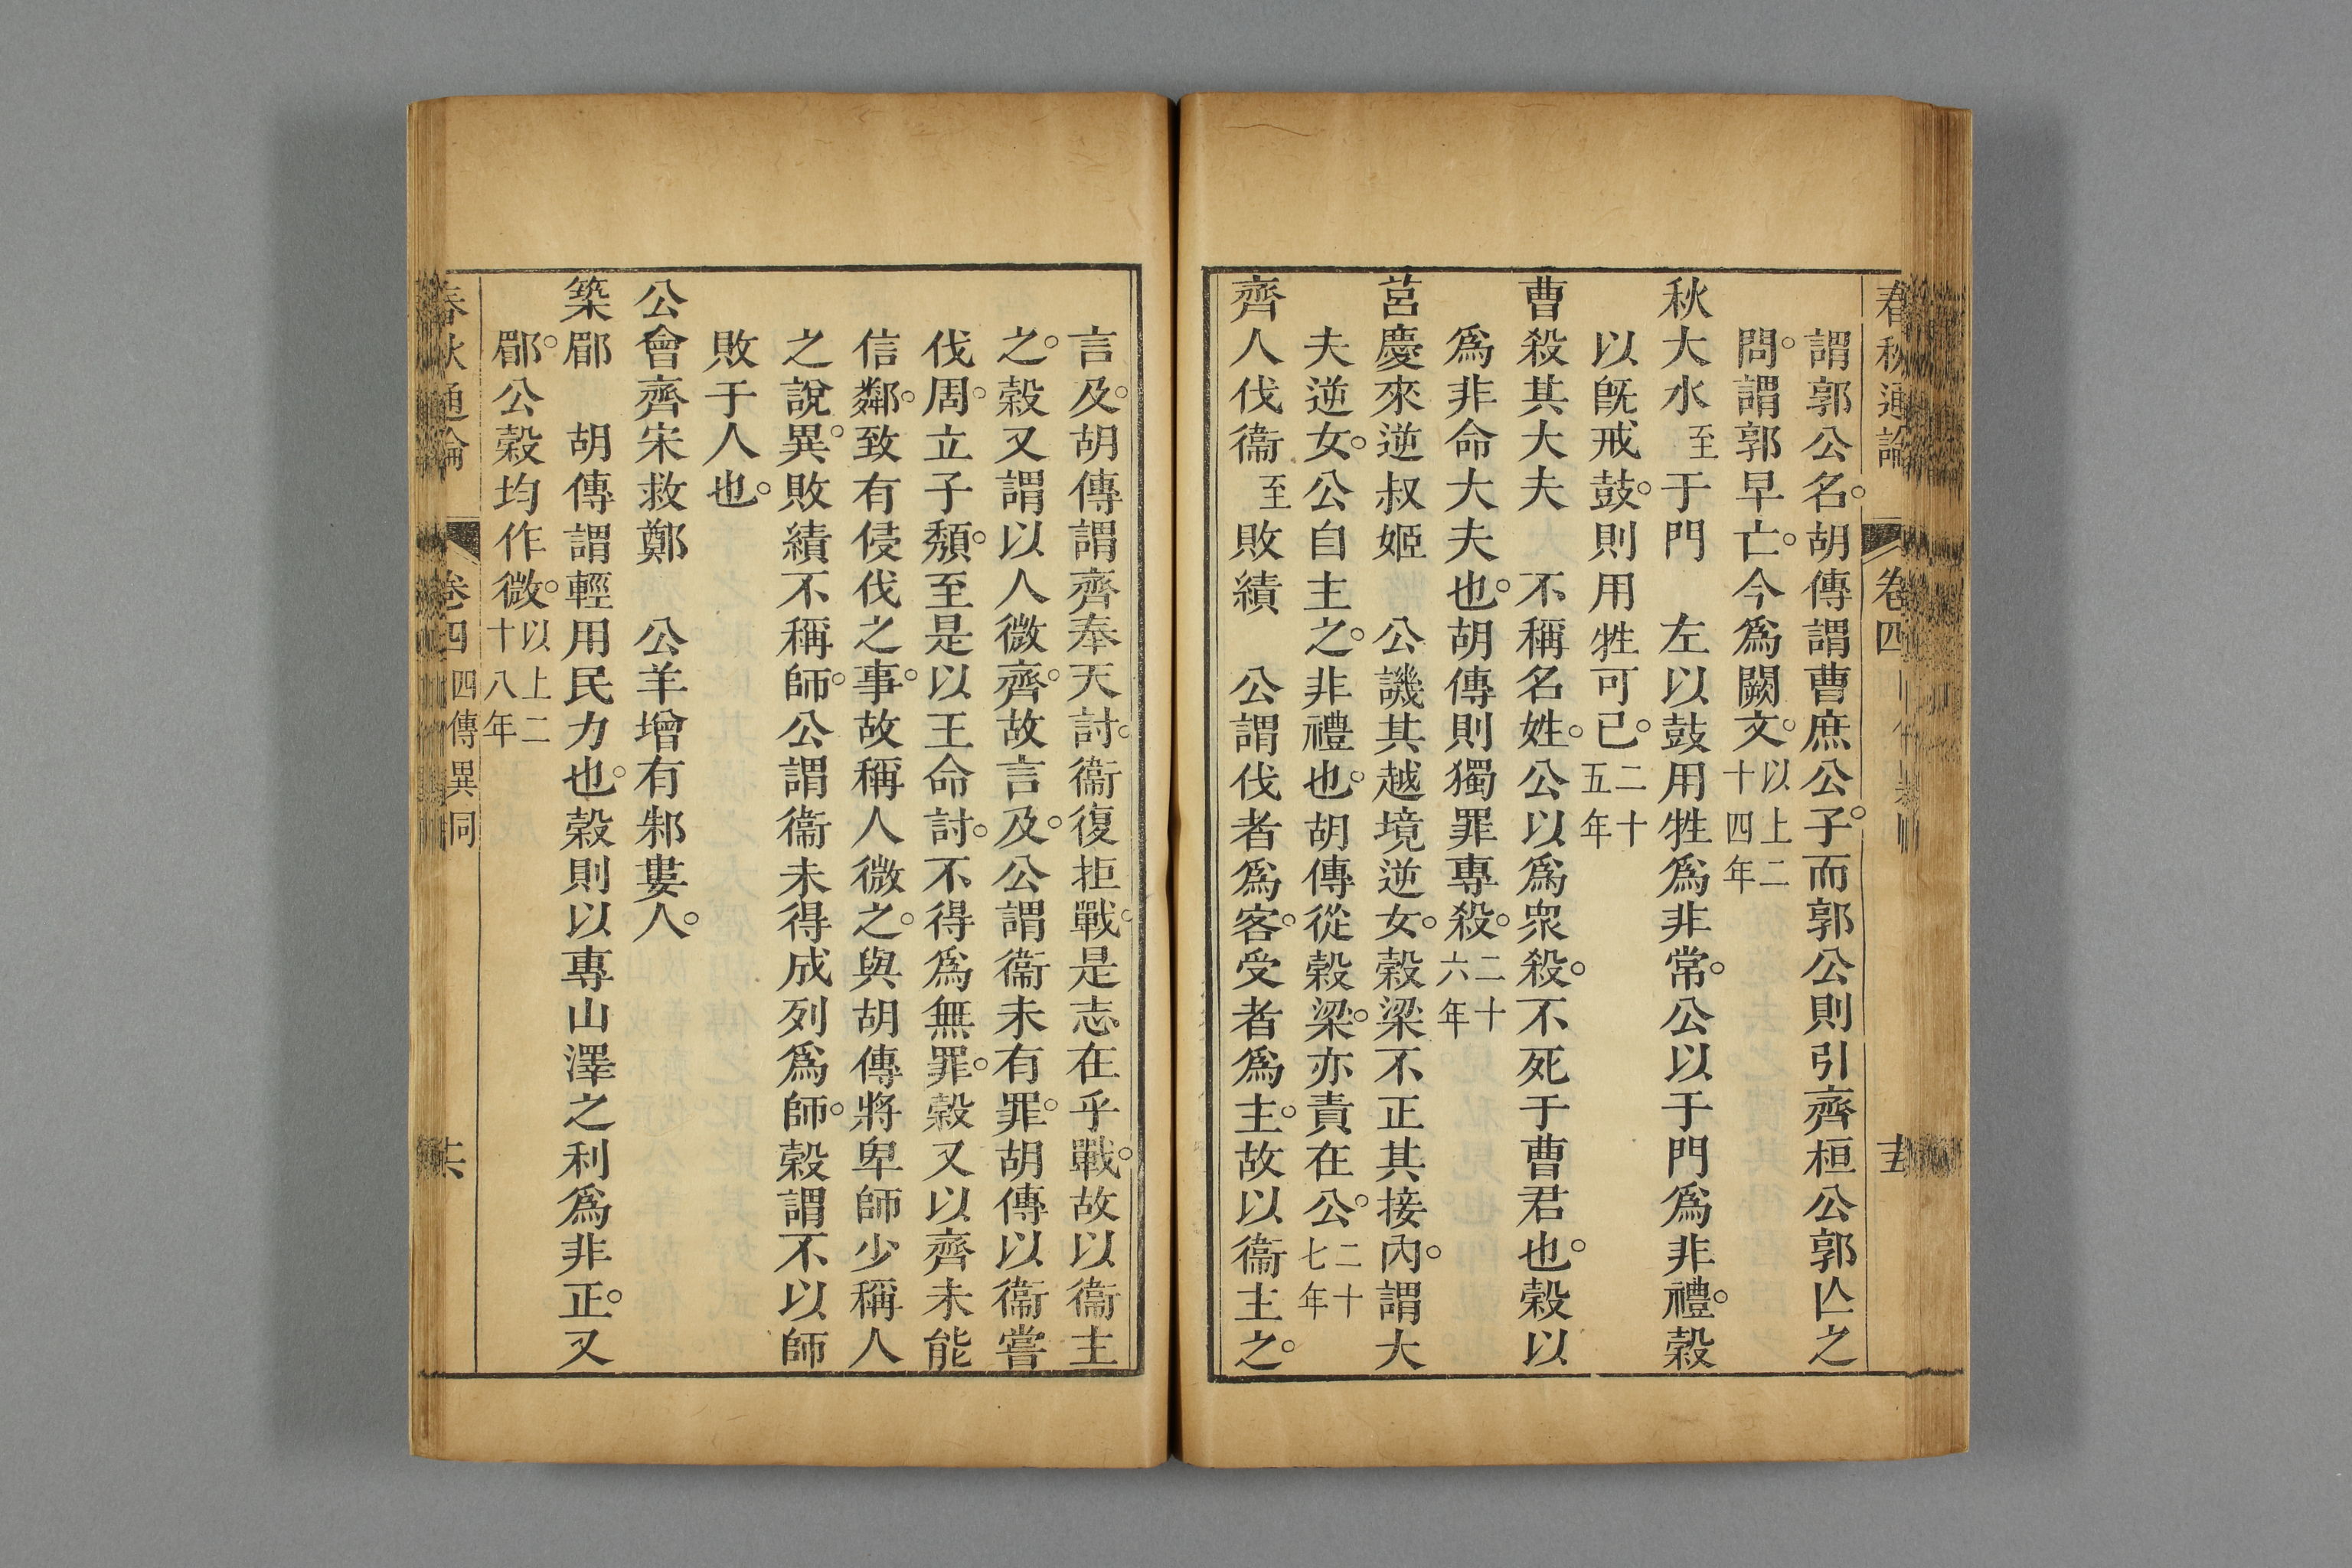 春秋通論 卷四 十五
謂郭公名。胡傳謂曹庶公子。而郭公則引齊桓公郭亾之
問。謂郭早亡。今爲闕文。以上二十四年
秋大水至于門 左以鼓用牲爲非常。公以于門爲非禮。穀
以旣戒鼓。則用牲可已。二十五年
曹殺其大夫 不稱名姓。公以爲衆殺。不死于曹君也。穀以
爲非命大夫也。胡傳則獨罪專殺。二十六年
莒慶來逆叔姬 公譏其越境逆女。穀梁不正其接內。謂大
夫逆女。公自主之。非禮也。胡傳從穀梁。亦責在公。二十七年
齊人伐衞至敗績 公謂伐者爲客。受者爲主。故以衞主之。
言及。胡傳謂齊奉天討。衞復拒戰。是志在乎戰。故以衞主
之。穀又謂以人微齊。故言及。公謂衞未有罪。胡傳以衞嘗
伐周。立子頽。至是以王命討。不得爲無罪。穀又以齊未能
信鄰。致有侵伐之事。故稱人微之。與胡傳將卑師少稱人
之說異。敗績不稱師。公謂衞未得成列爲師。穀謂不以師
敗于人也。
公會齊宋救鄭 公羊增有邾婁人。
築郿 胡傳謂輕用民力也。穀則以專山澤之利爲非正。又
郿。公穀均作微。以上二十八年
春秋通論 卷四 四傳異同 十六